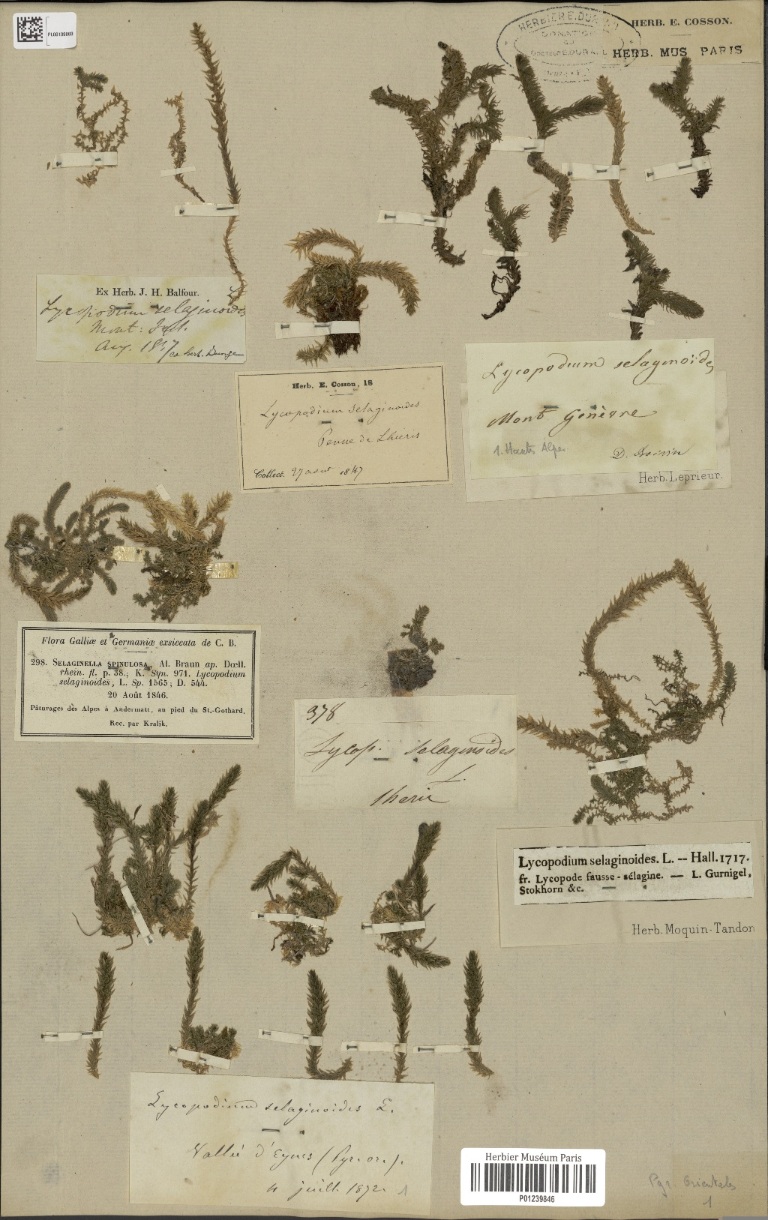 HERB. E. COSSON.
HERB. MUS. PARIS
Ex Herb. J. H. Balfour.
Lycopodium selaginoides
Aug. 1847
Herb. E. Cosson, 18
Lycopodium selaginoides
Collect. 27 aout 1847
Lycopodium selaginoides
Mont Genèvre
Herb. Leprieur.
Flora Galliæ et Germaniæ exsiccata de C. B.
298. SELAGINELLA SPINULOSA, Al. Braun ap. Dœll.
rhein. fl. p. 38.; K. Syn. 971. Lycopodium
selaginoides, L. Sp. 1565; D. 544.
20 Août 1846.
Pâturages des Alpes à Andermatt, au pied du St.-Gothard.
Rec. par Kralik.
378
Lycop. selaginoides
L.
Lycopodium selaginoides. L. — Hall. 1717.
fr. Lycopode fausse-sélagine. — L. Gurnigel,
Stokhorn &c.
Herb. Moquin-Tandon
Lycopodium selaginoides L.
Vallée d'Eynes (Pyr. or.).
4 juill. 1872.
Herbier Muséum Paris
P01239846
Pyr. Orientales
1